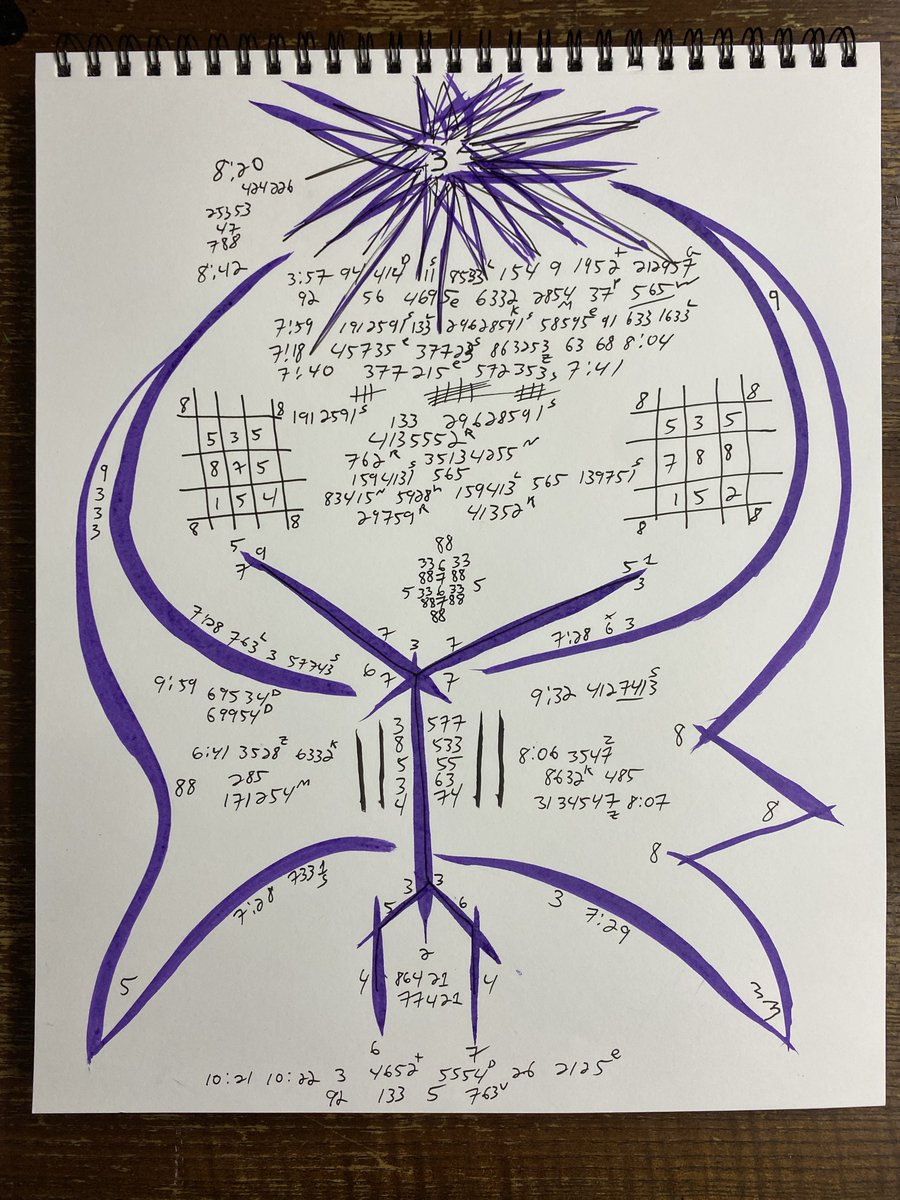 3
8:20
424226
25353
47
788
8:42
3:57 94 414ᴰ 11ˢ 8533ᴸ 154 9 1952⁺ 212957ᴳ
92 56 4695e 6332 2854 37ʳ 565ⁿ
7:59 1912591ˢ 133ᴸ 29628591ᴷˢ 58595ᵉ 91 633 1633ᴸ
7:18 45735ᵉ 37723ˢ 863253z 63 68 8:04
7:40 377215ᵉ 572353s 7:41
8 8
5 3 5
8 7 5
1 5 4
8 8
1912591ˢ 133 29628591ˢ
4135552ᴿ
762ᴿ 35134255ⁿ
1594131ˢ 565
83415ⁿ 5928ʰ 159413ᴸ 565 139751ˢ
29759ᴿ 41352ᴷ
8 8
5 3 5
7 8 8
1 5 2
8 8
9
9
3
3
3
5 9
7
88
33633
88788
5 33633 5
88788
88
5 1
3
7 3 7
6 7 7
7:28 763ᴸ 3 57743ˢ
7:28 6ˣ 3
9:59 69534ᴰ
69954ᴰ
9:32 4127413ˢ
6:41 3528ᶻ 6332ᴷ
285
171254ᴹ
88
3 577
8 533
5 55
3 63
4 74
8:06 3547ᶻ
8632ᴷ 485
3134547z 8:07
8
8
8
7:28 7331
3
3 7:29
3 3
5 6
2
4 86421 4
77421
5
33
6 7
10:21 10:22 3 4652⁺ 5554ᴰ 26 2125ᵉ
92 133 5 763ᵛ